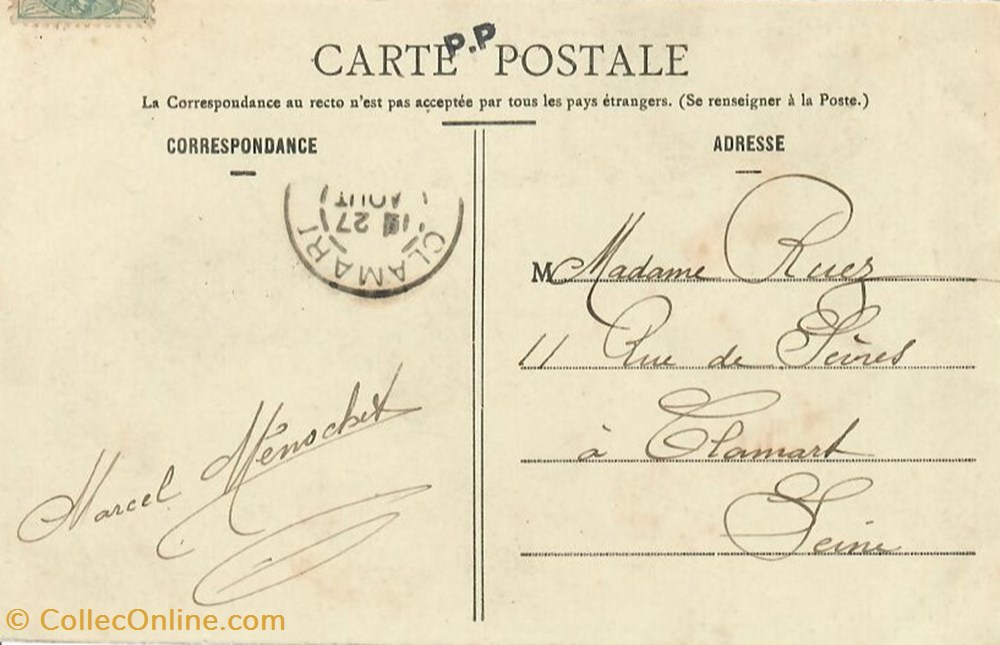 P.P
CARTE POSTALE
La Correspondance au recto n'est pas acceptée par tous les pays étrangers. (Se renseigner à la Poste.)
CORRESPONDANCE
ADRESSE
CLAMART
27
AOUT
M Madame Ruez
11 Rue de Sèvres
à Clamart
Seine
Marcel Ménochet
© CollecOnline.com